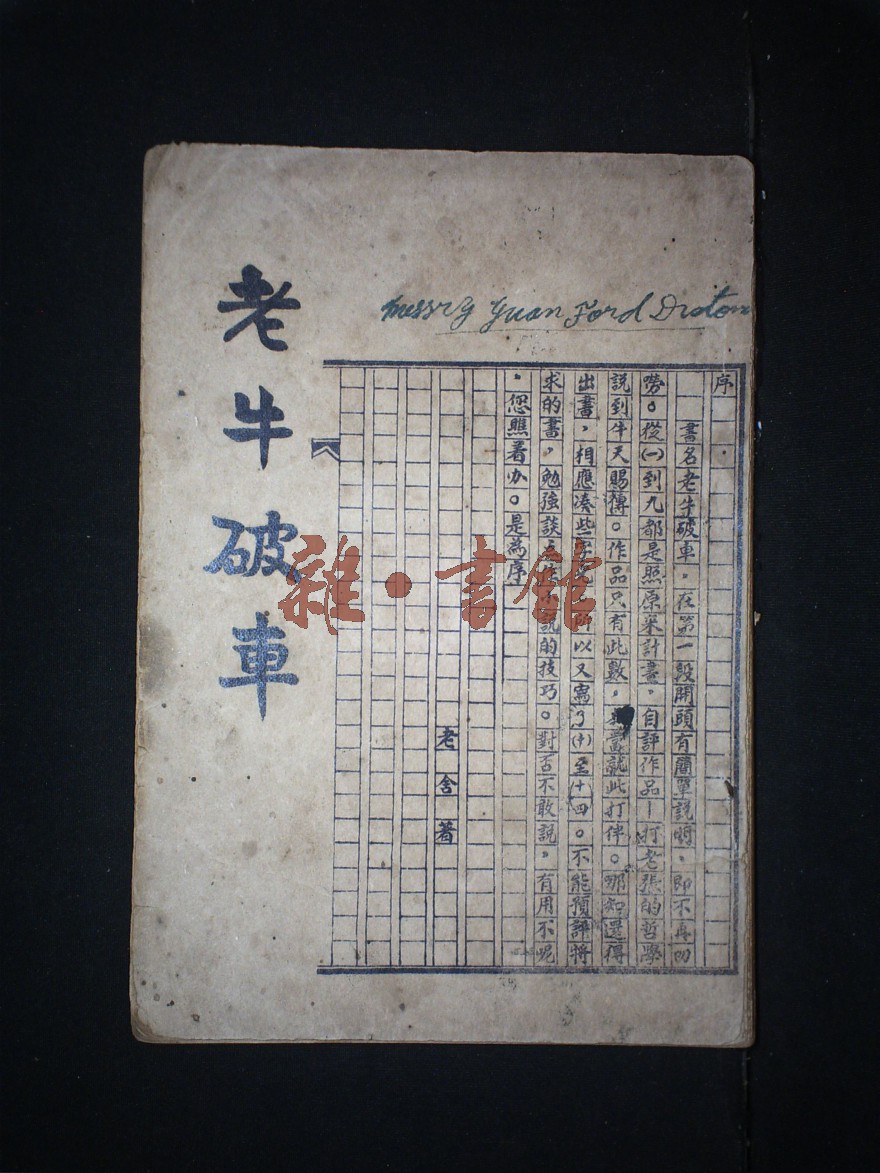 老牛破車
yuan Ford
序.
書名老牛破車，在第一段開頭有簡單說明，即不再叨
嘮。從(一)到九都是照原來計畫，自評作品—打老張的哲學
說到牛天賜傳。作品只有此數，當就此打住。那知還得
出書，相應凑些所以又寫了(十)至(十四)。不能預評將
來的書，勉強談小說的技巧。對否不敢說，有用不呢
，您照着办。是為序
老舍著
雜·書館